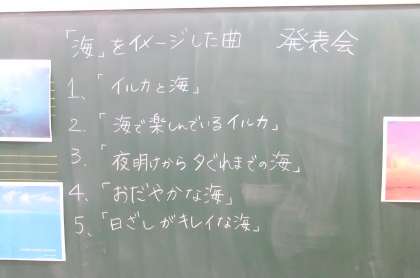 「海」をイメージした曲 発表会
1、「イルカと海」
2、「海で楽しんでいるイルカ」
3、「夜明けから夕ぐれまでの海」
4、「おだやかな海」
5、「日ざしがキレイな海」